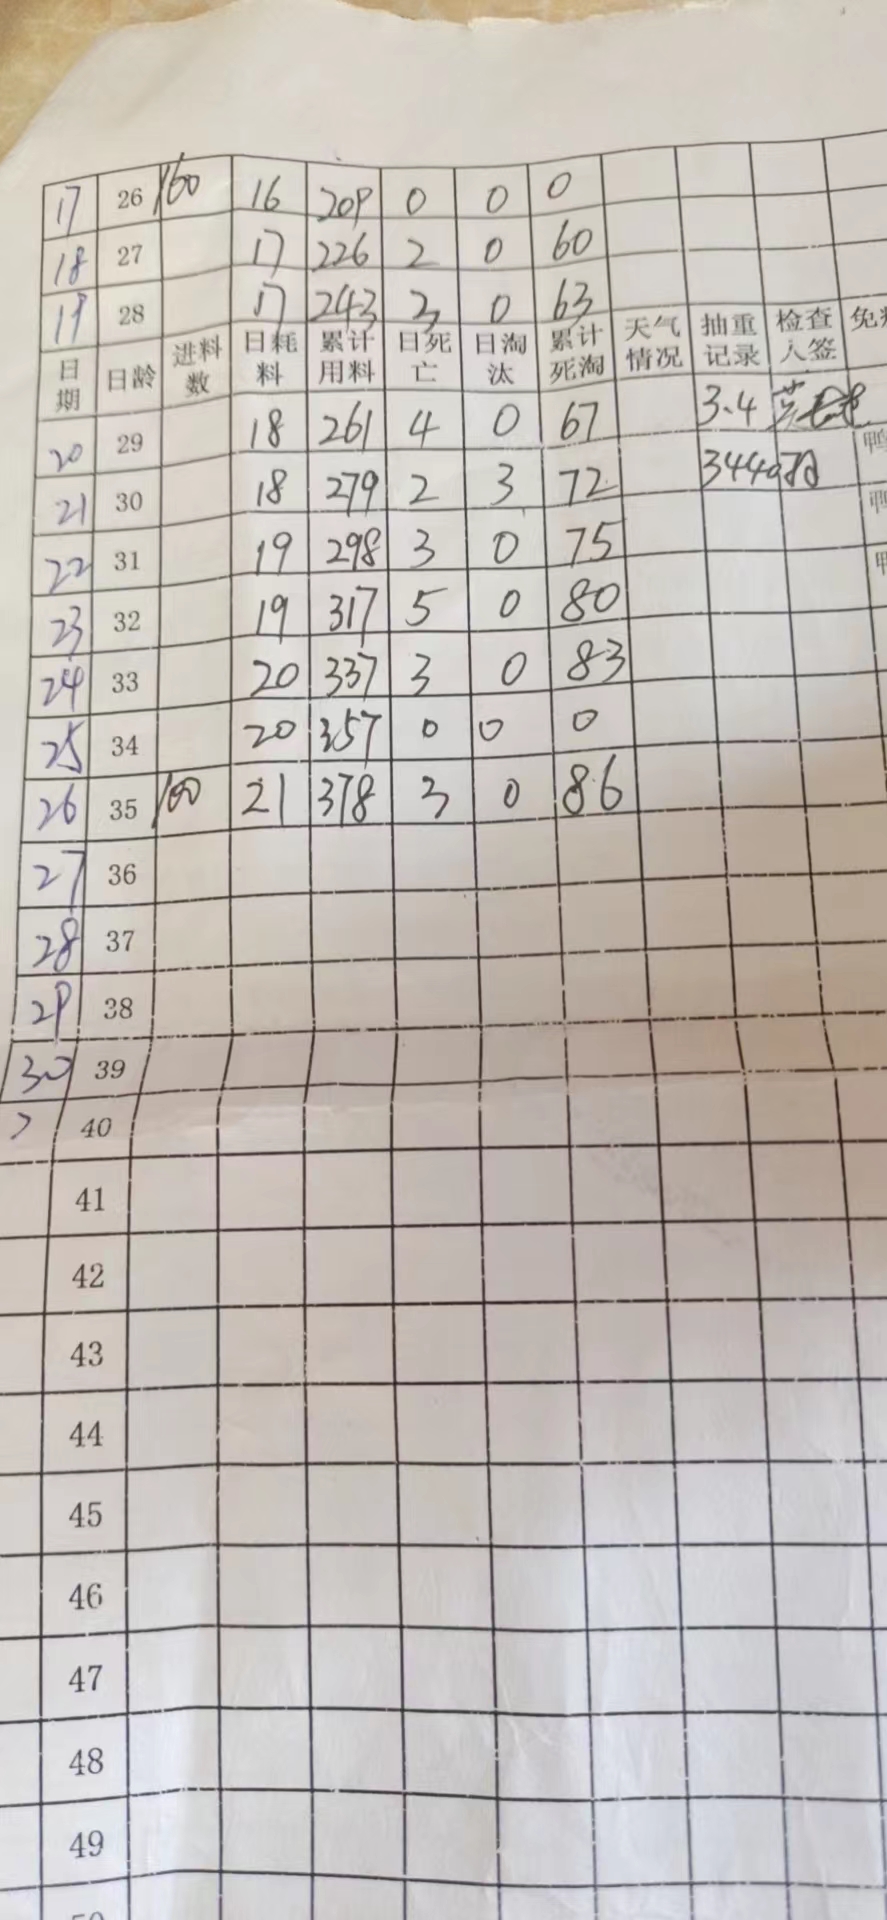 17 26 160 16 209 0 0 0
18 27 17 226 2 0 60
19 28 17 243 3 0 63
日期 日龄 进料数 日耗料 累计用料 日死亡 日淘汰 累计死淘 天气情况 抽重记录 检查人签
20 29 18 261 4 0 67 3.4
21 30 18 279 2 3 72
22 31 19 298 3 0 75
23 32 19 317 5 0 80
24 33 20 337 3 0 83
25 34 20 357 0 0 0
26 35 21 378 3 0 86
27 36
28 37
29 38
30 39
40
41
42
43
44
45
46
47
48
49